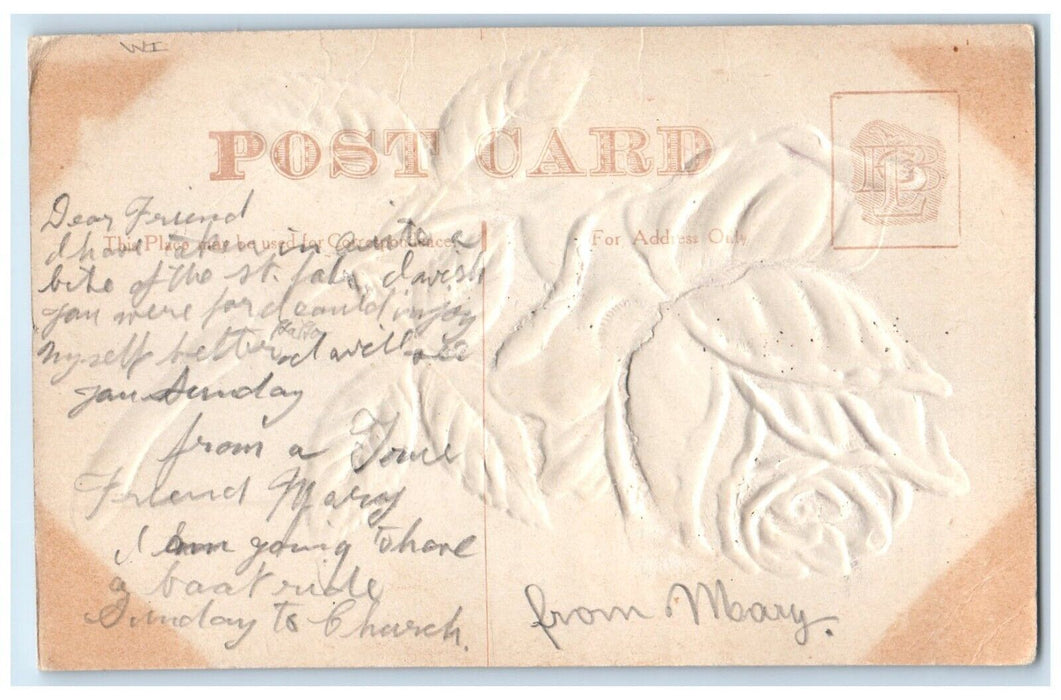 WI
POST CARD
This Place may be used for Correspondence
For Address Only
Dear Friend
I have taken in quite a
bite of the st. I wish
you were for I could injoy
myself better I will see
you Sunday
from a True
Friend Mary
I am going to have
a boat ride
Sunday to Church.
from Mary.